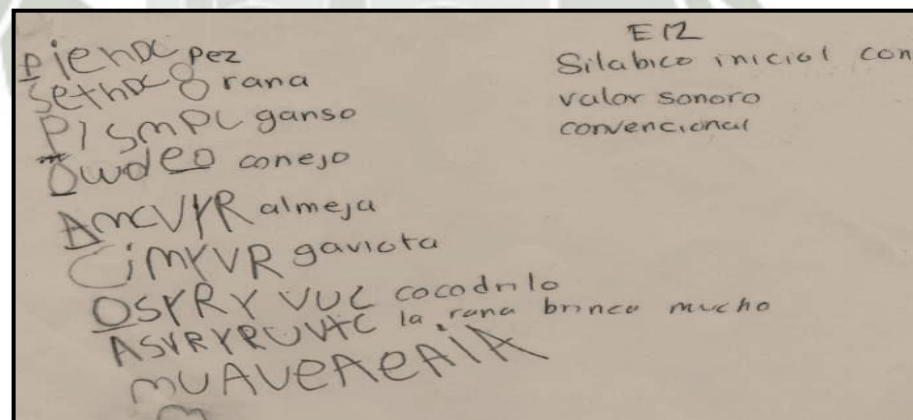 pienx pez
sethx8 rana
PISMPL ganso
Owdeo conejo
AmcVYR almeja
CiMYVR gaviota
OSYRY VUL cocodrilo
ASYRYRUVtC la rana brinca mucho
mUAVeAeAIA
m
E12
Silabico inicial con
valor sonoro
convencional